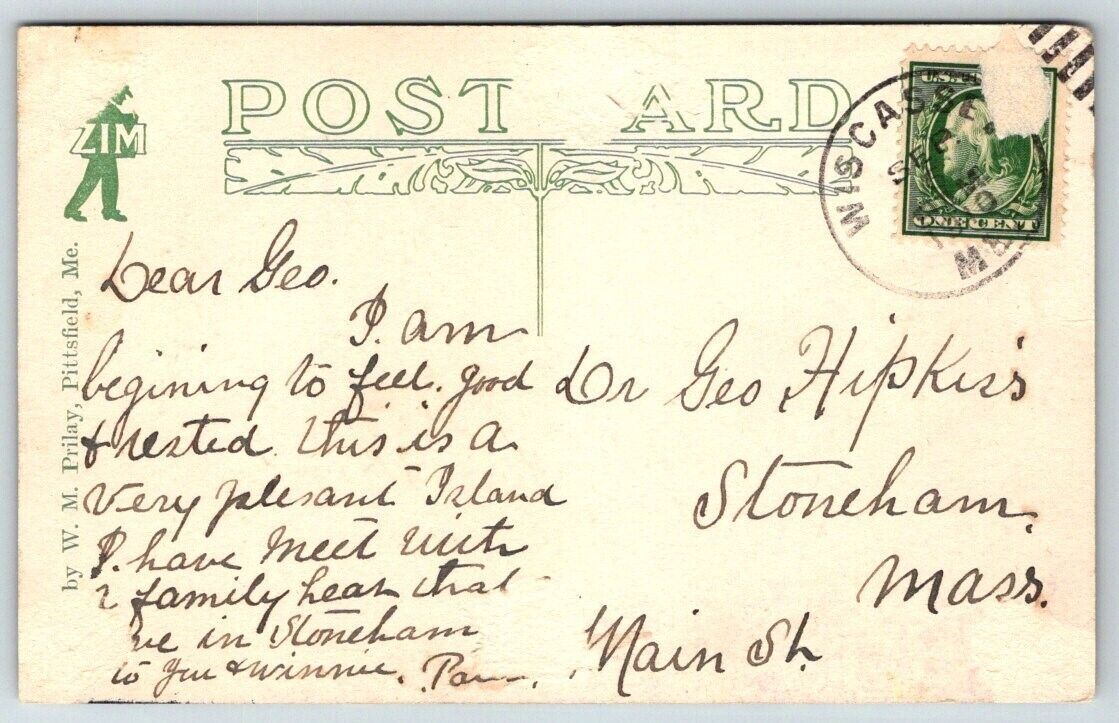 POST ARD
ZIM
U.S.
ONE CENT
WISCASSE
SEP
ME
by W. M. Prilay, Pittsfield, Me.
Dear Geo.
I am
begining to feel good
& rested this is a
very plesant Island
I have meet with
2 family hear that
ve in Stoneham
to you & Winnie.
Dr Geo Hipkiss
Stoneham.
Mass.
Main St.